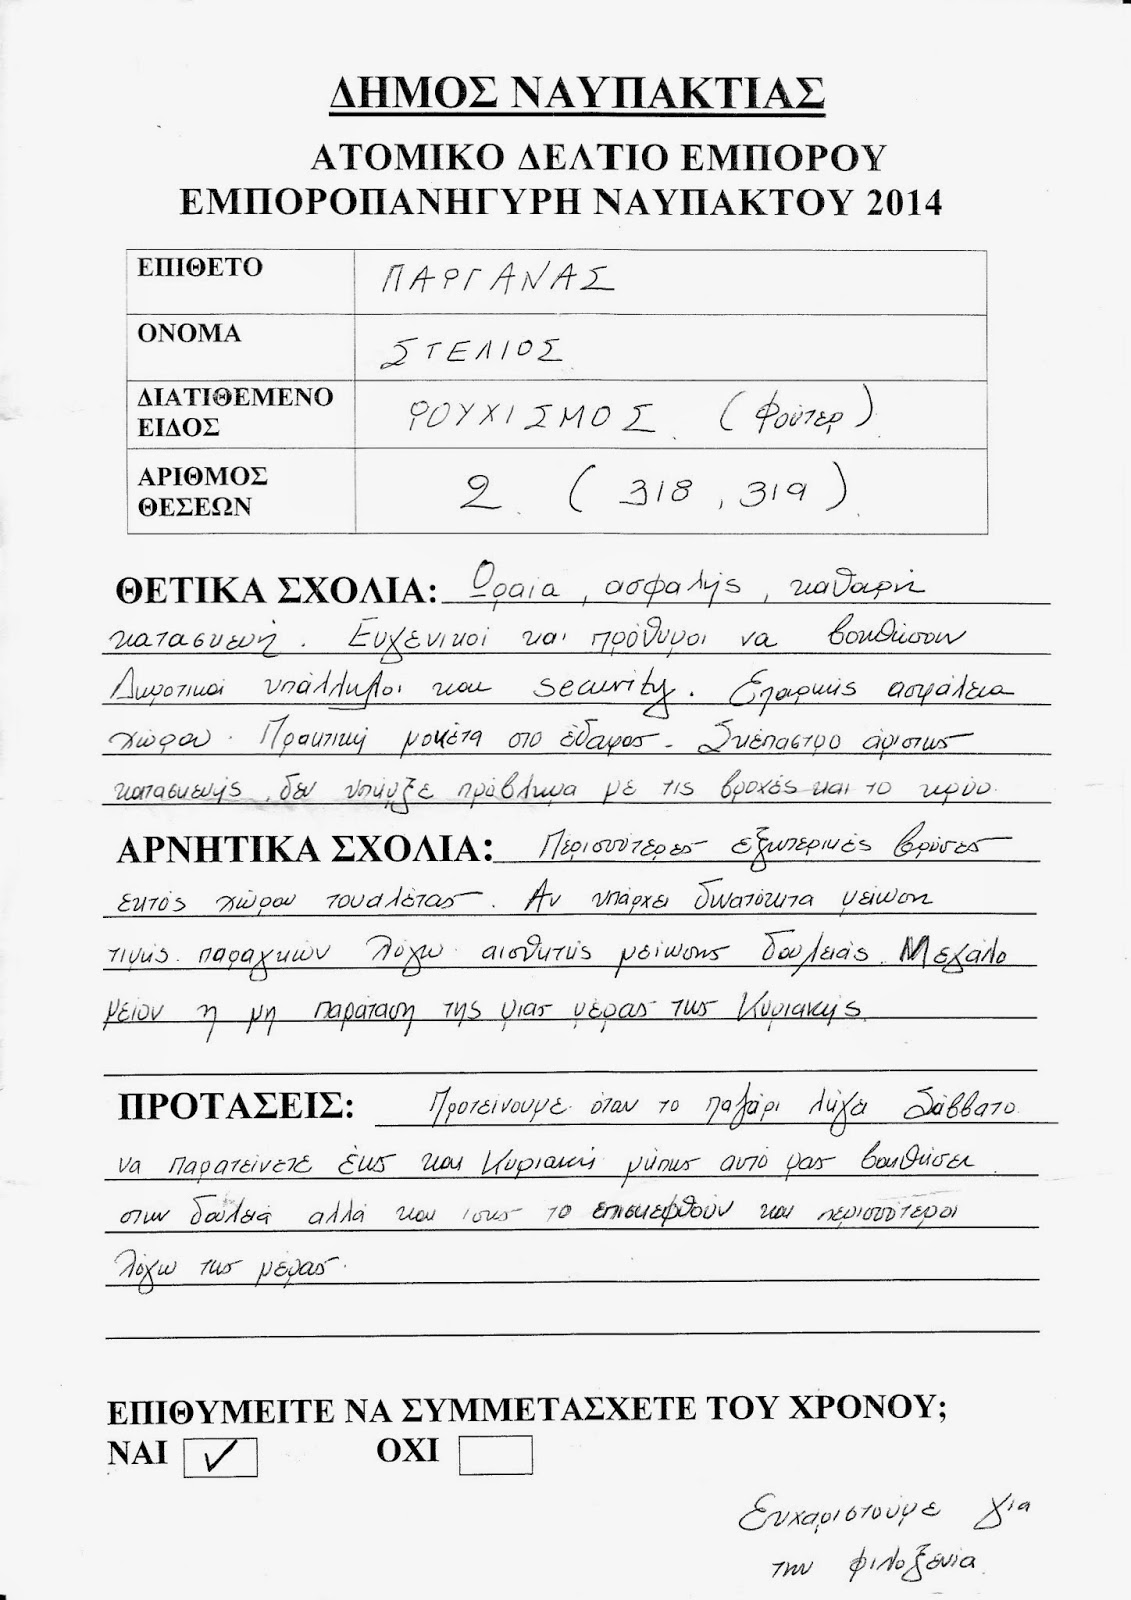 ΔΗΜΟΣ ΝΑΥΠΑΚΤΙΑΣ
ΑΤΟΜΙΚΟ ΔΕΛΤΙΟ ΕΜΠΟΡΟΥ
ΕΜΠΟΡΟΠΑΝΗΓΥΡΗ ΝΑΥΠΑΚΤΟΥ 2014
ΕΠΙΘΕΤΟ ΠΑΡΓΑΝΑΣ
ΟΝΟΜΑ ΣΤΕΛΙΟΣ
ΔΙΑΤΙΘΕΜΕΝΟ ΕΙΔΟΣ ΡΟΥΧΙΣΜΟΣ (φούτερ)
ΑΡΙΘΜΟΣ ΘΕΣΕΩΝ 2 (318, 319)
ΘΕΤΙΚΑ ΣΧΟΛΙΑ: Ωραία, ασφαλής, καθαρή
κατασκευή. Ευγενικοί και πρόθυμοι να βοηθήσουν
Δημοτικοί υπάλληλοι και security. Επαρκής ασφάλεια
χώρου. Πρακτική μοκέτα στο έδαφος. Σκέπαστρο άριστης
κατασκευής, δεν υπήρξε πρόβλημα με τις βροχές και το κρύο.
ΑΡΝΗΤΙΚΑ ΣΧΟΛΙΑ: Περισσότερες εξωτερικές βρύσες
εκτός χώρου τουαλέτας. Αν υπάρχει δυνατότητα μείωση
τιμής παραγκών λόγω αισθητής μείωσης δουλειάς. Μεγάλο
μείον η μη παράταση της μιας μέρας της Κυριακής.
ΠΡΟΤΑΣΕΙΣ: Προτείνουμε όταν το παζάρι λήγει Σάββατο
να παρατείνετε έως και Κυριακή μήπως αυτό μας βοηθήσει
στην δουλειά αλλά και ίσως το επισκεφθούν και περισσότεροι
λόγω της μέρας.
ΕΠΙΘΥΜΕΙΤΕ ΝΑ ΣΥΜΜΕΤΑΣΧΕΤΕ ΤΟΥ ΧΡΟΝΟΥ;
ΝΑΙ ✓ ΟΧΙ
Ευχαριστούμε για
την φιλοξενία.